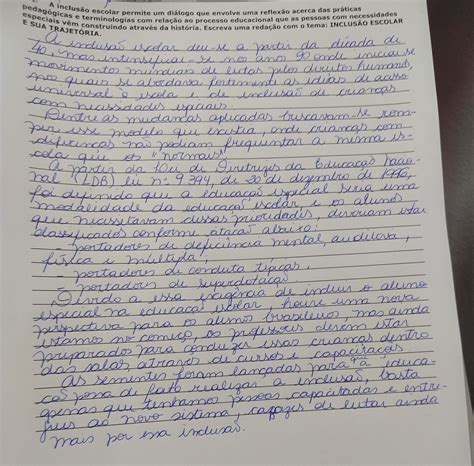 A inclusão escolar permite um diálogo que envolve uma reflexão acerca das práticas
pedagógicas e terminologias com relação ao processo educacional que as pessoas com necessidades
especiais vêm construindo através da história. Escreva uma redação com o tema: INCLUSÃO ESCOLAR
E SUA TRAJETÓRIA.
A inclusão escolar deu-se a partir da década de
40, mas intensificar-se no ano 90 onde iniciou-se
movimento mundiais de lutas pelos direitos humanos,
nos quais se abordava fortemente as idéias de acesso
universal a escola e de inclusão de crianças
com necessidades especiais.
Dentre as mudanças aplicadas buscavam-se rom-
per esse modelo que existia, onde crianças com
deficiências não podiam frequentar a mesma es-
cola que os "normais".
A partir da Lei de Diretrizes da Educação Nacio-
nal (LDB) lei nº 9.394, de 20 de dezembro de 1996,
foi definido que a educação especial seria uma
modalidade da educação escolar e os alunos
que necessitavam dessas prioridades, deveriam estar
classificados conforme abaixo:
- portadores de deficiência mental, auditiva,
física e múltipla;
- portadores de conduta típicas,
- portadores de superdotação
Divido a essa exigência de incluir o aluno
especial na educação escolar, houve uma nova
perspectiva para os alunos brasileiros, mas ainda
estamos no começo, os professores devem estar
preparados para conduzir essas crianças dentro
das salas, através de cursos e capacitação
As sementes foram lançadas para a educa-
ção possa de fato realizar a inclusão, basta
apenas que tenhamos pessoas capacitadas e entre-
gues ao novo sistema, capazes de lutar ainda
mais por essa inclusão.